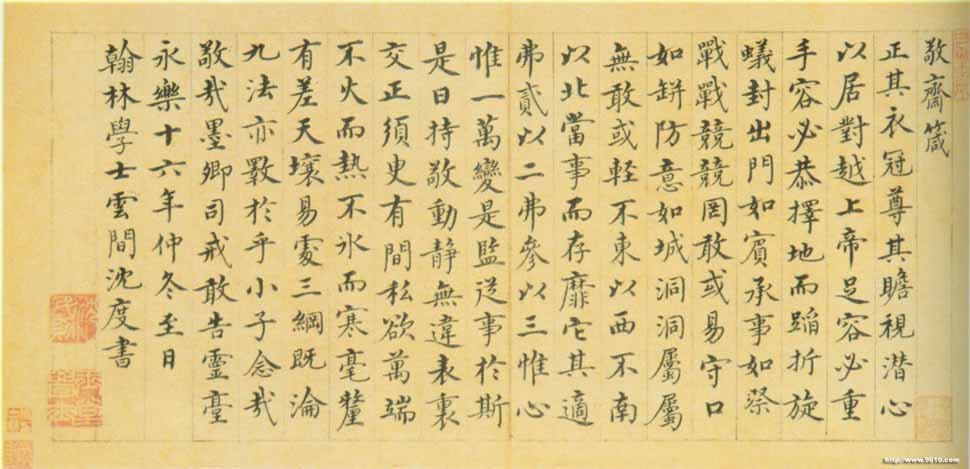 敬齋箴
正其衣冠尊其瞻視潜心
以居對越上帝足容必重
手容必恭擇地而蹈折旋
蟻封出門如賓承事如祭
戰戰兢兢罔敢或易守口
如缾防意如城洞洞屬屬
無敢或輕不東以西不南
以北當事而存靡它其適
弗貳以二弗參以三惟心
惟一萬變是監從事於斯
是曰持敬動靜無違表裏
交正須臾有間私欲萬端
不火而熱不氷而寒毫釐
有差天壤易處三綱既淪
九法亦斁於乎小子念哉
敬哉墨卿司戒敢告靈臺
永樂十六年仲冬至日
翰林學士雲間沈度書
http://www.9610.com